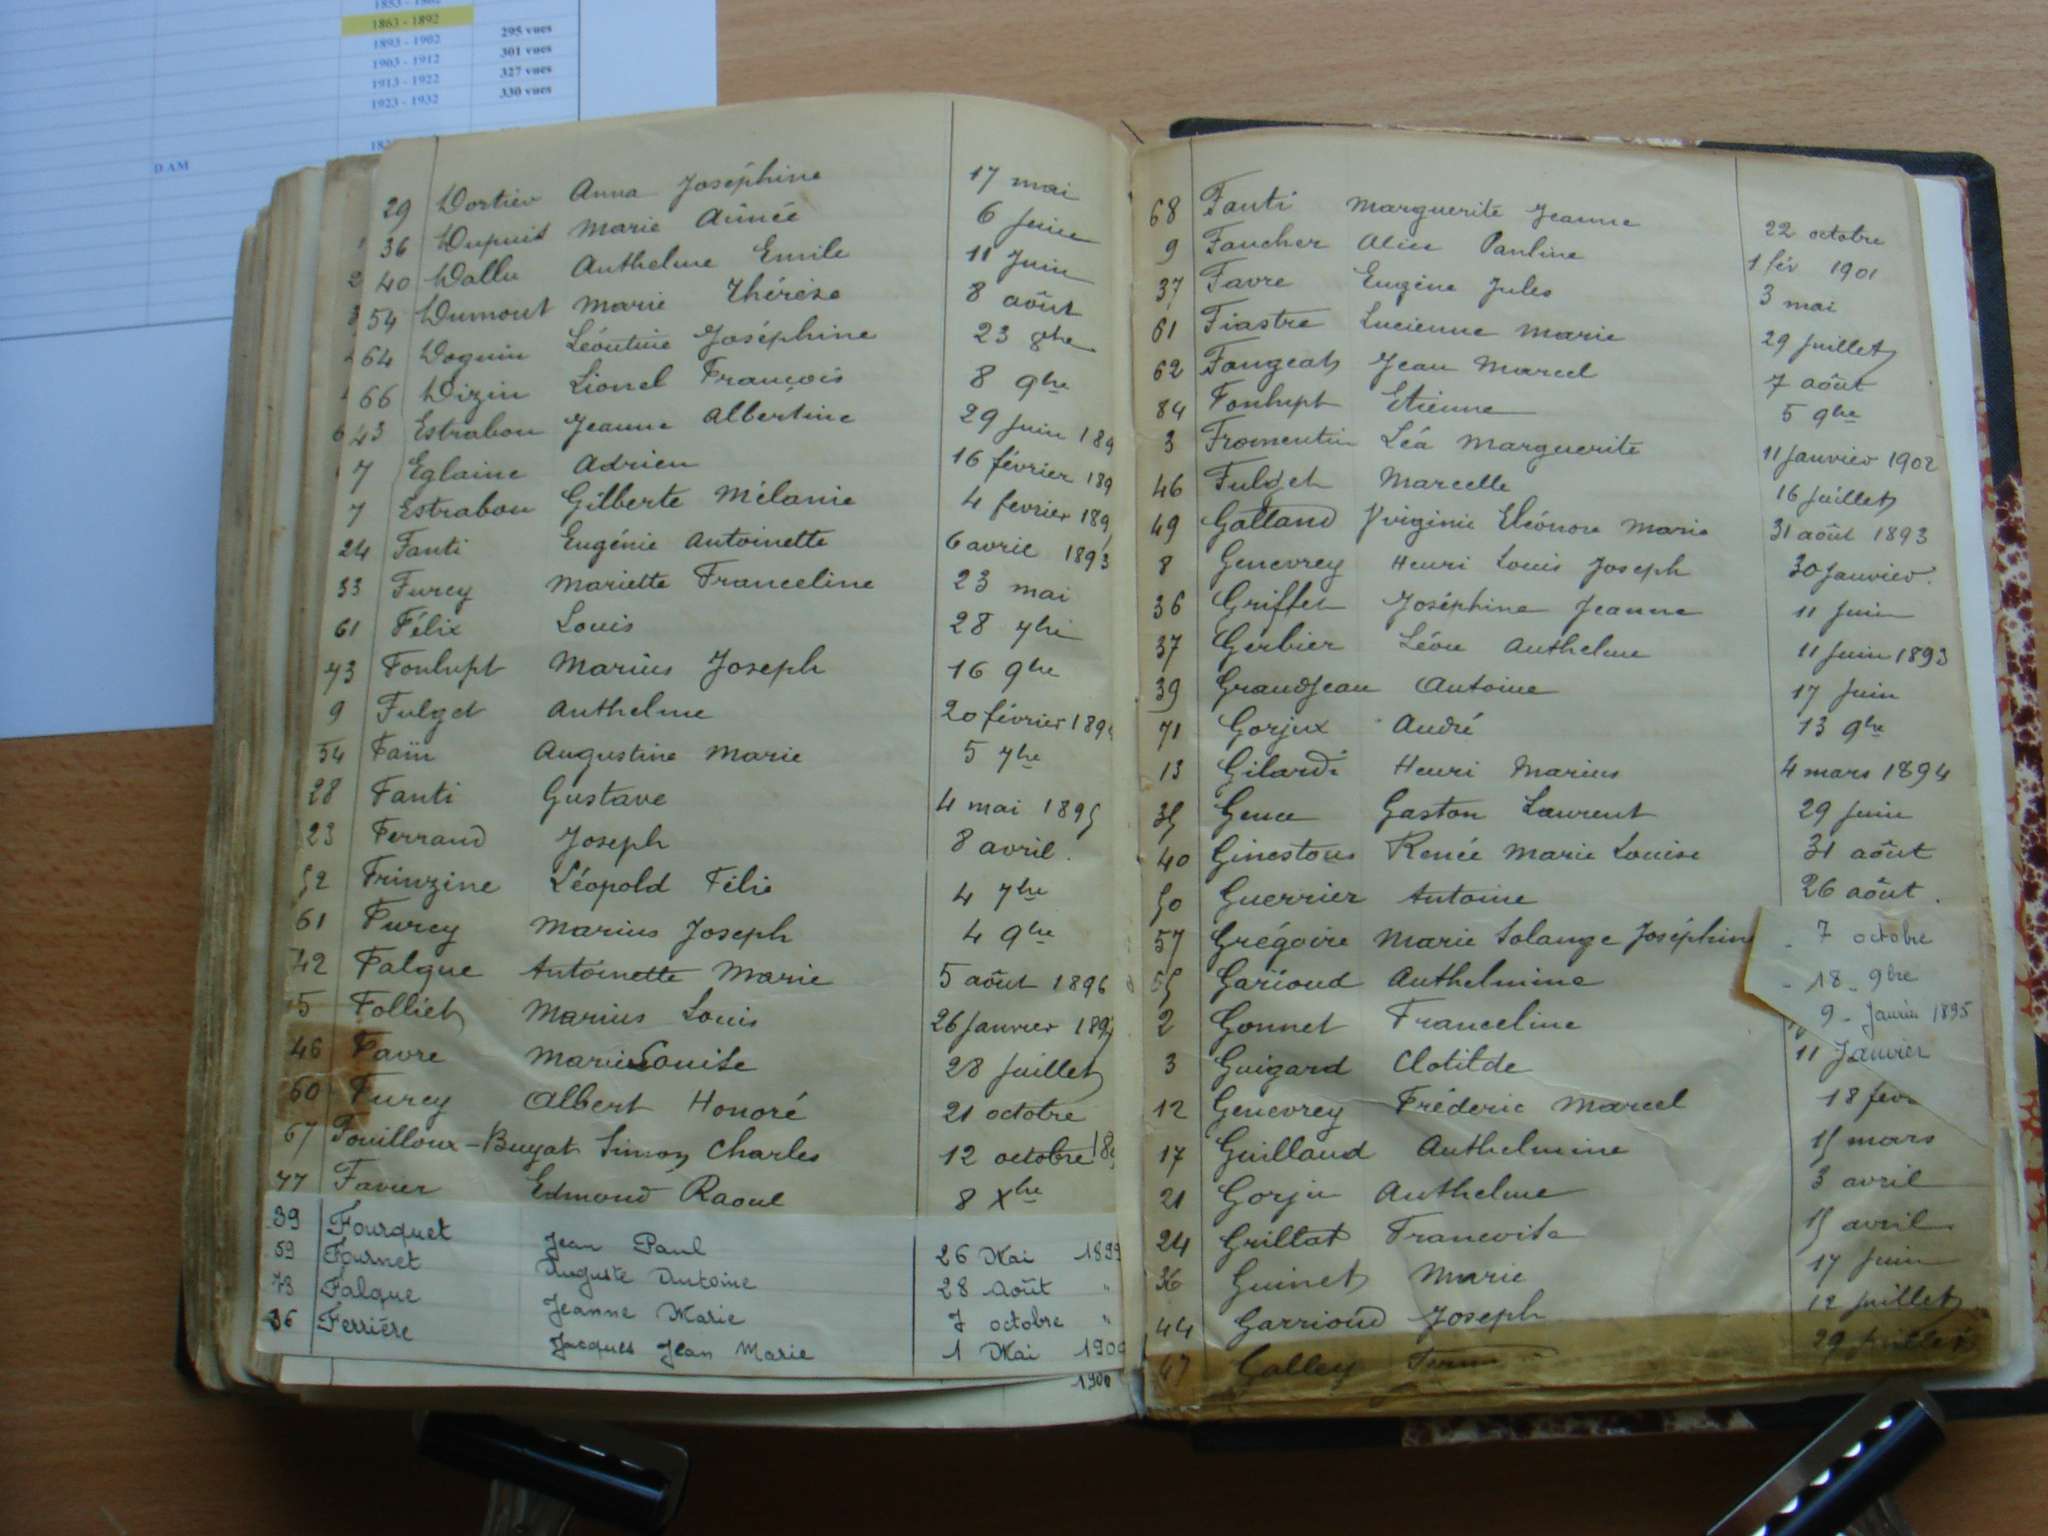 1853 - 1862
1863 - 1892
1893 - 1902 295 vues
1903 - 1912 301 vues
1913 - 1922 327 vues
1923 - 1932 330 vues
D AM
29 Dortier Anna Joséphine 17 mai
36 Dupuis Marie Aimée 6 Juin
40 Dallu Anthelme Emile 11 Juin
54 Dumont Marie Thérèse 8 août
64 Doguin Léontine Joséphine 23 8bre
66 Dizin Lionel François 8 9bre
43 Estrabou Jeanne Albertine 29 Juin 189
7 Eglaine Adrien 16 février 189
7 Estrabou Gilberte Mélanie 4 fevrier 189
24 Fanti Eugénie Antoinette 6 avril 1893
33 Furcy Mariette Franceline 23 mai
61 Félix Louis 28 7bre
73 Fonlupt Marius Joseph 16 9bre
9 Fulget Anthelme 20 février 189
54 Faïn Augustine Marie 5 7bre
28 Fanti Gustave 4 mai 1895
23 Ferrand Joseph 8 avril.
52 Frinzine Léopold Félix 4 7bre
61 Furcy Marius Joseph 4 9bre
42 Falque Antoinette Marie 5 août 1896
5 Folliet Marius Louis 26 Janvier 1897
46 Favre Marie Louise 28 Juillet
60 Furcy Albert Honoré 21 octobre
67 Fouilloux-Buyat Simon Charles 12 octobre 189
77 Favier Edmond Raoul 8 Xbre
39 Fourquet Jean Paul 26 Mai 1899
59 Fournet Auguste Antoine 28 Août "
73 Falque Jeanne Marie 7 octobre "
36 Ferrière Jacques Jean Marie 1 Mai 1900
1900
68 Fanti Marguerite Jeanne 22 octobre
9 Faucher Alice Pauline 1 fév 1901
37 Favre Eugène Jules 3 mai
61 Fiastre Lucienne Marie 29 Juillet
62 Fongeat Jean Marcel 7 août
84 Fonlupt Etienne 5 9bre
3 Fromentin Léa Marguerite 11 Janvier 1902
46 Fulget Marcelle 16 Juillet
49 Galland Virginie Eléonore Marie 31 août 1893
8 Genevrey Henri Louis Joseph 30 Janvier.
36 Griffet Joséphine Jeanne 11 Juin
37 Gerbier Léon Anthelme 11 Juin 1893
39 Grandjean Antoine 17 Juin
71 Gorjux André 13 9bre
13 Gilardi Henri Marius 4 mars 1894
35 Genu Gaston Laurent 29 Juin
40 Ginestous Renée Marie Louise 31 août
50 Guerrier Antoine 26 août.
57 Grégoire Marie Solange Joséphine 7 octobre
65 Garioud Anthelmine 18 9bre
2 Gonnet Franceline 9 Janvier 1895
3 Guigard Clotilde 11 Janvier
12 Genevrey Fréderic Marcel 18 fév
17 Guilland Anthelmine 15 mars
21 Gorju Anthelme 3 avril
24 Grillat Francoise 15 avril
36 Guinet Marie 17 Juin
44 Garrioud Joseph 12 Juillet
47 Galley 29 Juillet